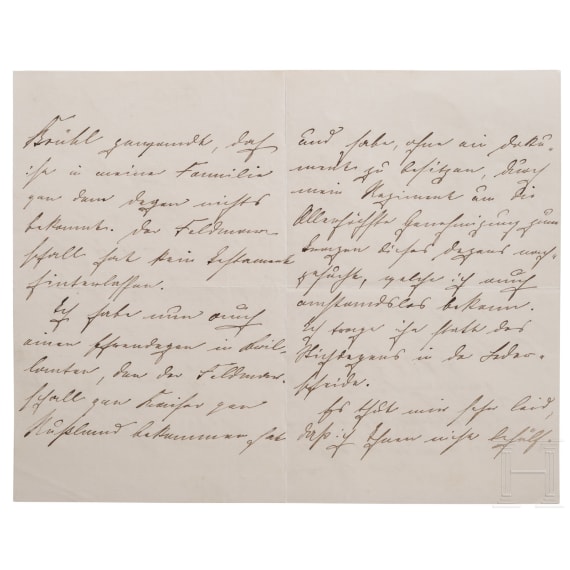 Brühl gesandt, daß
ihr in meiner Familie
von dem Degen nichts
bekannt. Der Feldmar-
schall hat kein Testament
hinterlassen.
Ich habe nun auch
einen Ehrendegen in Bril-
lanten, den der Feldmar-
schall vom Kaiser von
Rußland bekommen hat
und habe, ohne ein Doku-
ment zu besitzen, durch
mein Regiment um die
Allerhöchste Genehmigung zum
Tragen dieses Degens nach-
gesucht, welche ich auch
anstandslos bekam.
Ich trage ihn statt des
in der Leder-
scheide.
Es thut mir sehr leid,
daß ich Ihnen nicht behülf-